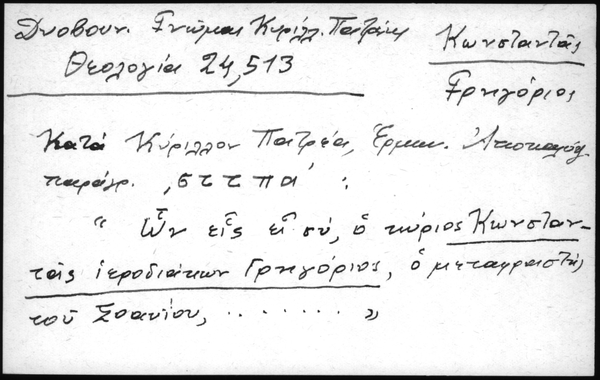 Δυοβουν. Γνῶμαι Κυρίλλ. Πατρέως
Θεολογία 24, 513
Κωνσταντᾶς
Γρηγόριος
Κατά Κύριλλον Πατρέα, Ἑρμην. Ἀποκαλύψ.
παράγρ. ͵ςττπα΄ :
“ Ὧν εἷς εἶ σύ, ὁ κύριος Κωνσταν-
τᾶς ἱεροδιάκων Γρηγόριος, ὁ μεταφραστής
τοῦ ........ „